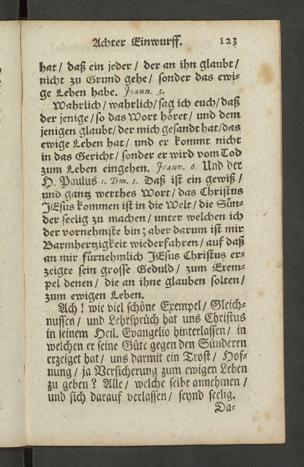 Achter Einwurff. 123
hat / daß ein jeder / der an ihn glaubt /
nicht zu Grund gehe / sonder das ewi-
ge Leben habe. Joann. 3.
Wahrlich / wahrlich / sag ich euch / daß
der jenige / so das Wort höret / und dem
jenigen glaubt / der mich gesandt hat / das
ewige Leben hat / und er kommt nicht
in das Gericht / sonder er wird vom Tod
zum Leben eingehen. Joann. 6. Und der
H. Paulus 1. Tim. 1. Daß ist ein gewiß /
und gantz werthes Wort / das Christus
JEsus kommen ist in die Welt / die Sün-
der seelig zu machen / unter welchen ich
der vornehmste bin; aber darum ist mir
Barmhertzigkeit wiederfahren / auf daß
an mir fürnehmlich JEsus Christus er-
zeigte sein grosse Gedult / zum Exem-
pel denen / die an ihne glauben solten /
zum ewigen Leben.
Ach! wie viel schöne Exempel / Gleich-
nussen / und Lehrsprüch hat uns Christus
in seinem Heil. Evangelio hinterlassen / in
welchen er seine Güte gegen den Sünderen
erzeiget hat / uns darmit ein Trost / Hof-
nung / ja Versicherung zum ewigen Leben
zu geben? Alle / welche selbe annehmen /
und sich darauf verlassen / seynd seelig.
Da-